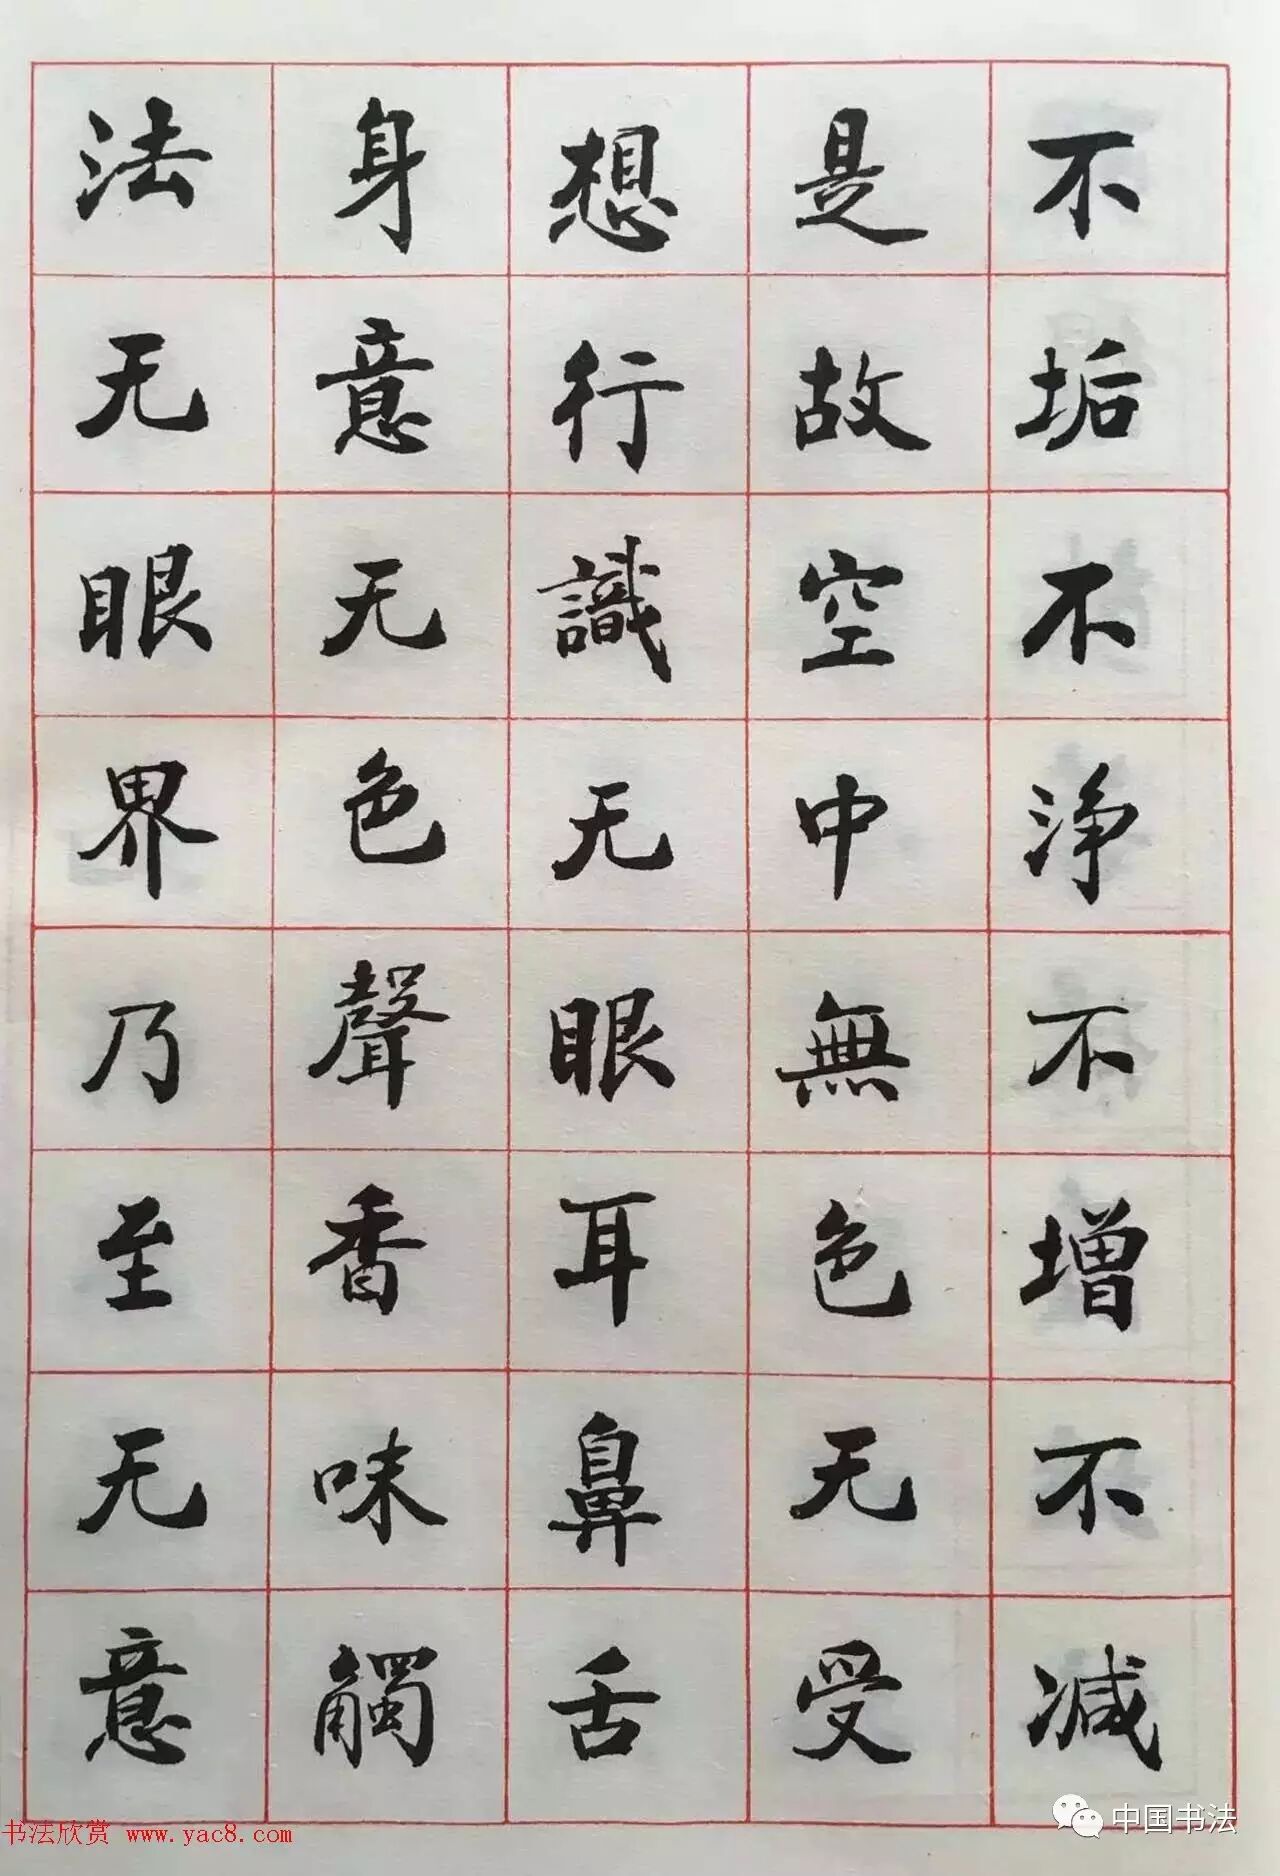 不垢不净不增不减
是故空中無色无受
想行識无眼耳鼻舌
身意无色聲香味觸
法无眼界乃至无意
书法欣赏 www.yac8.com
中国书法